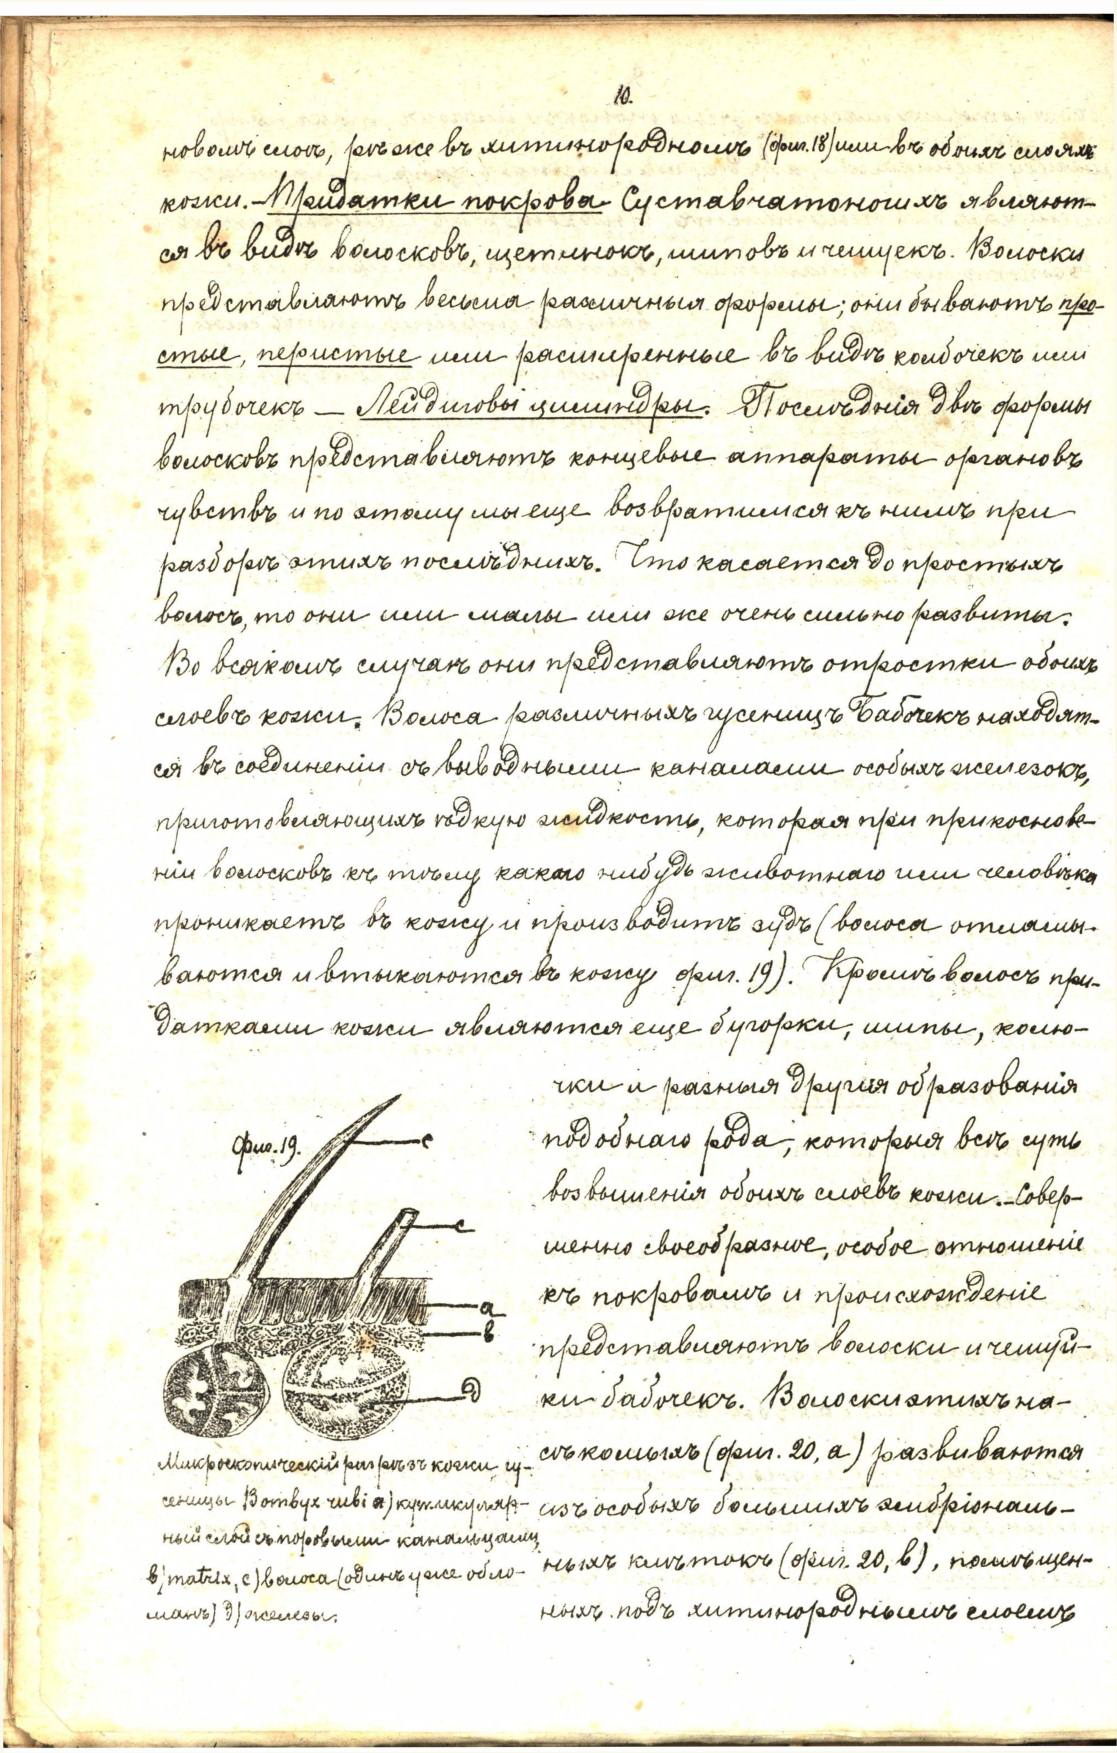 10.
новомъ слоѣ, рѣже въ хитинородномъ (фиг. 18) или въ обоихъ слояхъ
кожи. – Придатки покрова Суставчатоногихъ являют-
ся въ видѣ волосковъ, щетинокъ, шиповъ и чешуекъ. Волоски
представляютъ весьма различныя формы; они бываютъ про-
стые, перистые или расширенные въ видѣ колбочекъ или
трубочекъ — Лейдиговы цилиндры. Послѣднія двѣ формы
волосковъ представляютъ концевые аппараты органовъ
чувствъ и по этому мы еще возвратимся къ нимъ при
разборѣ этихъ послѣднихъ. Что касается до простыхъ
волосъ, то они или малы или же очень сильно развиты.
Во всякомъ случаѣ они представляютъ отростки обоихъ
слоевъ кожи. Волоса различныхъ гусеницъ Бабочекъ находят-
ся въ соединеніи съ выводными каналами особыхъ железокъ,
приготовляющихъ ѣдкую жидкость, которая при прикоснове-
ніи волосковъ къ тѣлу какого нибудь животнаго или человѣка
проникаетъ въ кожу и производитъ зудъ (волоса отламы-
ваются и втыкаются въ кожу фиг. 19). Кромѣ волосъ при-
датками кожи являются еще бугорки, шипы, колю-
чки и разныя другія образованія
подобнаго рода, которыя всѣ суть
возвышенія обоихъ слоевъ кожи. – Совер-
шенно своеобразное, особое отношеніе
къ покровамъ и происхожденіе
представляютъ волоски и чешуй-
ки бабочекъ. Волоски этихъ на-
сѣкомыхъ (фиг. 20, а) развиваются
изъ особыхъ большихъ эмбріональ-
ныхъ клѣтокъ (фиг. 20, в), помѣщен-
ныхъ подъ хитинороднымъ слоемъ
Фиг. 19.
с
с
а
в
д
Микроскопическій разрѣзъ кожи гу-
сеницы Bombyx rubi а) кутикуляр-
ный слой съ поровыми канальцами
в) matrix, с) волоса (одинъ уже обло-
манъ) д) железы.